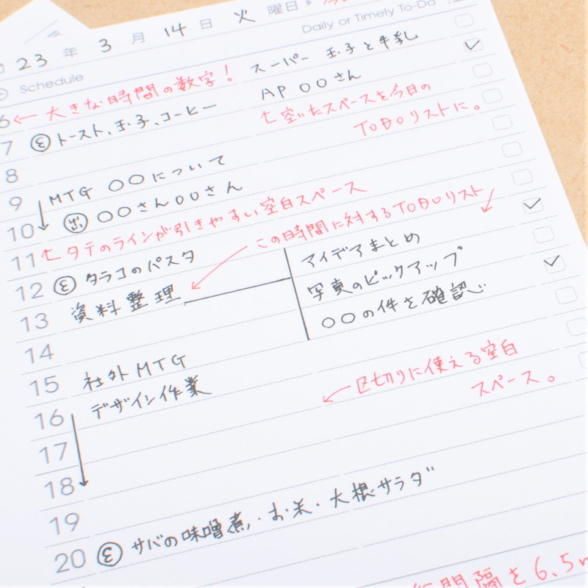 23 年 3 月 14 日 火 曜日
Schedule
Daily or Timely To-Do
6 ← 大きな時間の数字！ スーパー 玉子と牛乳
7 トースト、玉子、コーヒー AP 〇〇さん
↑空いたスペースを今日の
TODOリストに。
8
9 MTG 〇〇について
10 〇〇さん〇〇さん
11 ↑タテのラインが引きやすい空白スペース
この時間に対するTODOリスト
12 タラコのパスタ アイデアまとめ
13 資料整理 写真のピックアップ
〇〇の件を確認
14
15 社外MTG
16 デザイン作業 ← 区切りに使える空白
スペース。
17
18
19
20 サバの味噌煮・お米・大根サラダ
間隔を6.5